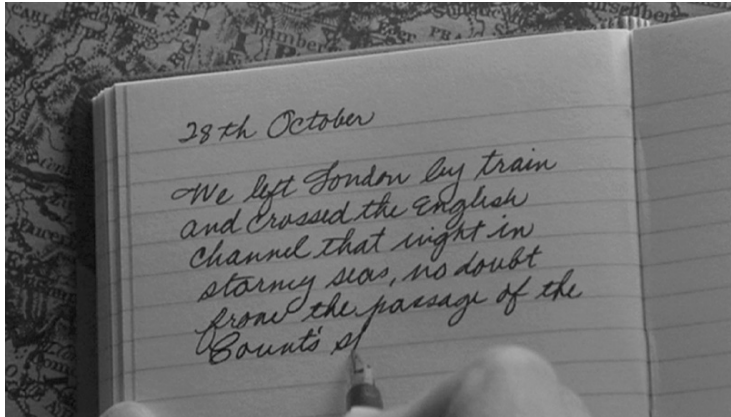 28th October
We left London by train
and crossed the English
channel that night in
stormy seas, no doubt
from the passage of the
Count's s